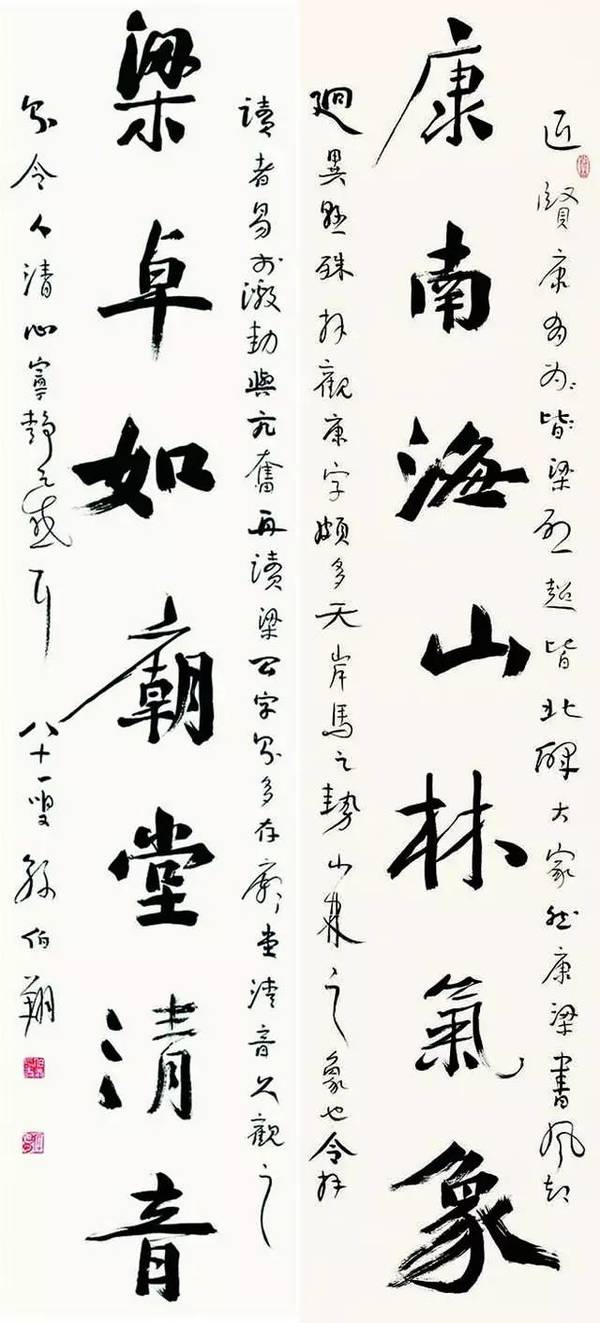 近賢康有为皆梁啟超皆北碑大家然康梁書風却
康南海山林氣象
廻異懸殊拜觀康字頗多天岸馬之勢山林之象也令拜
讀者易於激動與亢奮再讀梁公字則多存廟堂清音久觀之
梁卓如廟堂清音
則令人清心寧靜之感耳 八十一叟孫伯翔